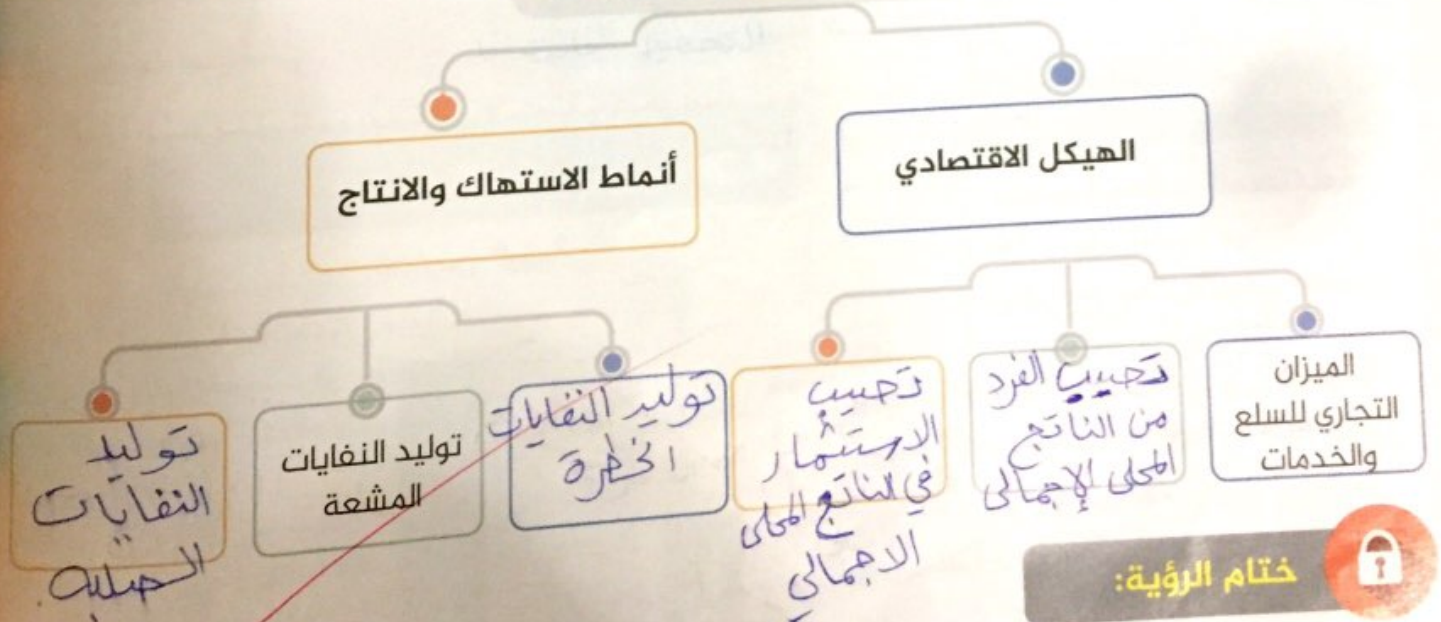 الهيكل الاقتصادي
أنماط الاستهاك والانتاج
الميزان
التجاري للسلع
والخدمات
الفرد
من الناتج
المحلى الإجمالى
الاستثمار
في الناتج المحلى
الاجمالي
توليد النفايات
الخطرة
توليد النفايات
المشعة
توليد
النفايات
الصلبة
ختام الرؤية: